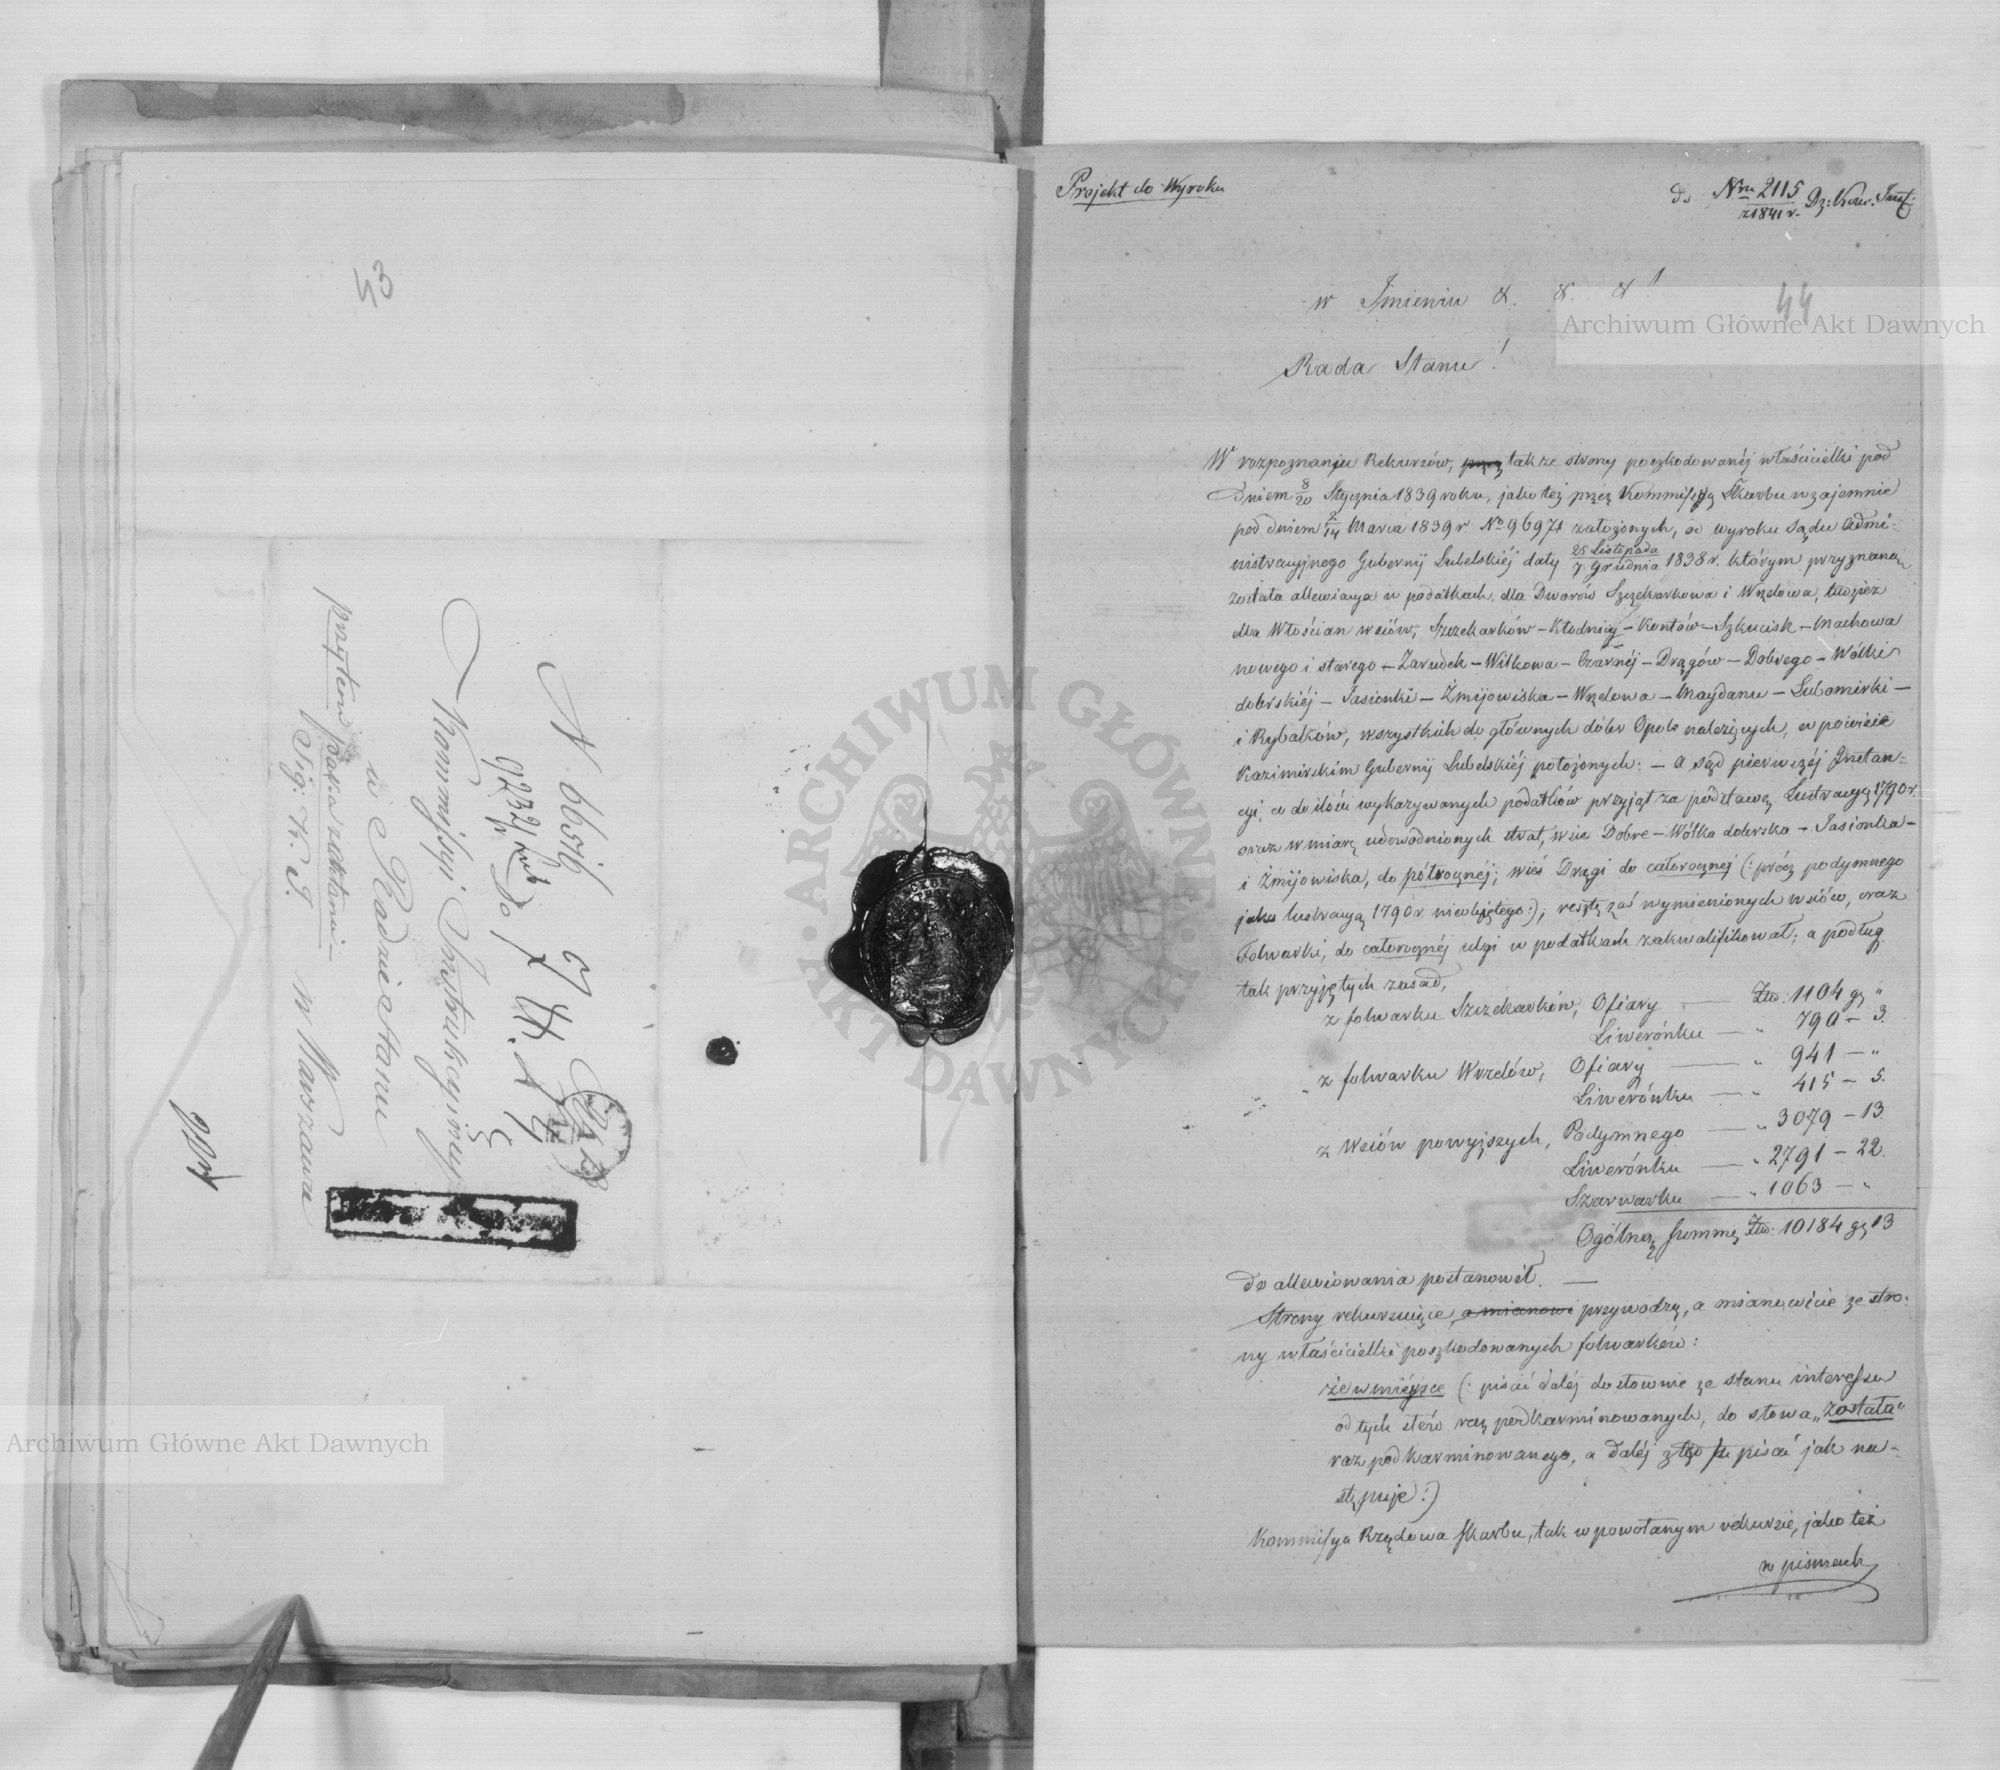 53
N. 66516
92321/
Do
Kommissyi Instrukcyjnej
w Radzie Stanu
w Warszawie
przytem paczka z aktami
Sig: K. S.
Projekt do Wyroku
do Nru 2115 Dz: Kom. Inst:
z 1841 r.
44
w Imieniu &. &. &!
Rada Stanu!
W rozpoznaniu Rekursów, przez także strony poszkodowanéj właścicielki pod
Dniem 8/20 Stycznia 1839 roku, jako też przez Kommissyą Skarbu wzajemnie
pod dniem 2/14 Marca 1839 r No 96971 założonych, od wyroku Sądu Admi-
nistracyjnego Gubernij Lubelskiéj daty 25 Listopada / 7 Grudnia 1838 r. którym przyznaną
została allewiacya w podatkach, dla Dworów Szczekarkowa i Wrzelowa, tudzież
dla Włościan wsiów, Szczekarków – Kłodnicy – Kontów – Szkucisk – Machowa
nowego i starego – Zarudek – Wilkowa – Czarnéj – Drągów – Dobrego – Wólki
dobrskiéj – Jasionki – Żmijowiska – Wrzelowa – Maydanu – Lubomirki –
i Rybaków, wszystkich do głównych dóbr Opole należących, w powiecie
Kazimirskim Gubernij Lubelskiéj położonych: – a Sąd pierwszéj Instan-
cyi, co do ilości wykazywanych podatków przyjął za podstawę Lustracyą 1790 r.
oraz w miarę udowodnionych strat, wsie Dobre – Wólka doberska – Jasionka –
i Żmijowiska, do półrocznéj; wieś Drągi do całorocznéj (: prócz podymnego
jako lustracyą 1790 r. nieobjętego:), resztę zaś wymienionych wsiów, oraz
Folwarki, do całorocznéj ulgi w podatkach zakwalifikował; a podług
tak przyjętych zasad,
z folwarku Szczekarków, Ofiary — Złp. 1104 gr "
Liwerónku — " 790 – 3.
z folwarku Wrzelów, Ofiary — " 941 – "
Liwerónku — " 415 – 5.
z Wsiów powyższych, Podymnego — " 3079 – 13
Liwerónku — " 2791 – 22.
Szarwarku — " 1063 – "
Ogólną summę Złp. 10184 gr 13
do allewiowania postanowił. —
Strony rekursujące, a mianowi przywodzą, a mianowicie ze stro-
ny właścicielki poszkodowanych folwarków:
że w miéjsce (: pisać daléj dosłownie ze stanu interessu
od tych słów raz podkarminowanych, do słowa „została"
raz podkarminowanego, a daléj pisać jak na-
stępuje:)
Kommissya Rządowa Skarbu, tak w powołanym rekursie, jako też
w pismach
Archiwum Główne Akt Dawnych
Archiwum Główne Akt Dawnych
ARCHIWUM GŁÓWNE AKT DAWNYCH